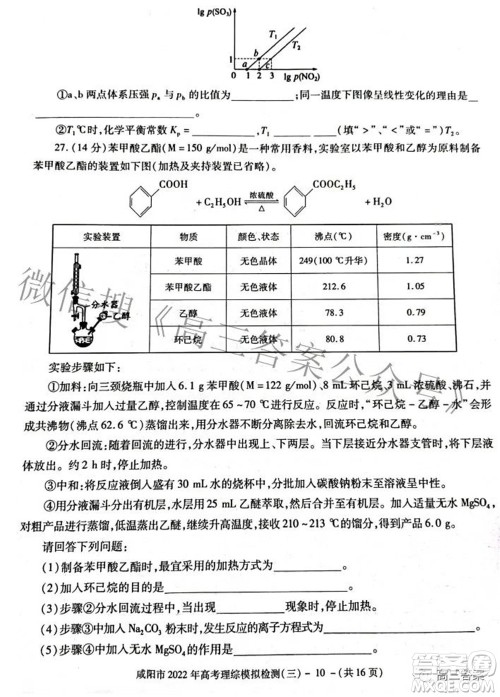 lg p(SO₃)
T₁
T₂
b
1
a
c
0 1 2 3 lg p(NO₂)
①a、b 两点体系压强 pₐ 与 p_b 的比值为________;同一温度下图像呈线性变化的理由是
________。
②T₁℃时,化学平衡常数 Kₚ=________,T₁ ________(填“>”、“<”或“=”)T₂。
27.(14 分)苯甲酸乙酯(M=150 g/mol)是一种常用香料,实验室以苯甲酸和乙醇为原料制备
苯甲酸乙酯的装置如下图(加热及夹持装置已省略)。
COOH
+C₂H₅OH
浓硫酸
△
COOC₂H₅
+H₂O
实验装置 物质 颜色、状态 沸点(℃) 密度(g·cm⁻³)
苯甲酸 无色晶体 249(100 ℃升华) 1.27
苯甲酸乙酯 无色液体 212.6 1.05
乙醇 无色液体 78.3 0.79
环己烷 无色液体 80.8 0.73
分水器
乙醇
实验步骤如下:
①加料:向三颈烧瓶中加入 6.1 g 苯甲酸(M=122 g/mol)、8 mL 环己烷、3 mL 浓硫酸、沸石,并
用通过分液漏斗加入过量乙醇,控制温度在 65~70 ℃进行反应。反应时,“环己烷-乙醇-水”会形
成共沸物(沸点 62.6 ℃)蒸馏出来,用水分离出水,回流环己烷和乙醇。
②分水回流:随着回流的进行,分水器中出现上、下两层。当下层液体接近分水器支管时,将下层液
体放出。约 2 h 时,停止加热。
③中和:将反应液倒入盛有 30 mL 水的烧杯中,分批加入碳酸钠粉末至溶液呈中性。
④用分液漏斗分出有机层,水层用乙醚萃取,然后合并至有机层。加入适量无水 MgSO₄,
对粗产品进行蒸馏,低温蒸出乙醚,继续升高温度,接收 210~213 ℃的馏分,得到产品 6.0 g。
请回答下列问题:
(1)制备苯甲酸乙酯时,最宜采用的加热方式为________。
(2)加入环己烷的目的是________。
(3)步骤②分水回流过程中,当出现________现象时,停止加热。
(4)步骤③中加入 Na₂CO₃ 粉末时,发生反应的离子方程式为________。
(5)步骤④中加入无水 MgSO₄ 的作用为________。
咸阳市 2022 年高考理综模拟检测(三)- 10 -(共 16 页)
微信搜《高三答案公众号》
高三答案